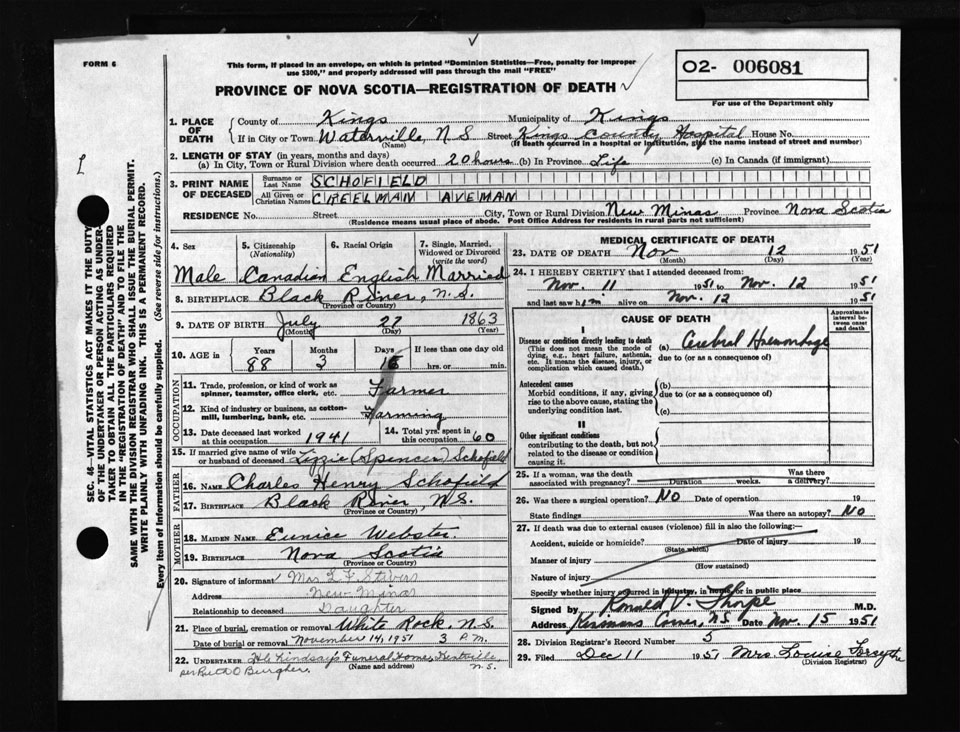 FORM 6
This form, if placed in an envelope, on which is printed "Dominion Statistics—Free, penalty for improper
use $300," and properly addressed will pass through the mail "FREE"
PROVINCE OF NOVA SCOTIA—REGISTRATION OF DEATH
02- 006081
For use of the Department only
SEC. 46—VITAL STATISTICS ACT MAKES IT THE DUTY
OF THE UNDERTAKER OR PERSON ACTING AS UNDER-
TAKER TO OBTAIN ALL THE PARTICULARS REQUIRED
IN THE "REGISTRATION OF DEATH" AND TO FILE THE
SAME WITH THE DIVISION REGISTRAR WHO SHALL ISSUE THE BURIAL PERMIT.
WRITE PLAINLY WITH UNFADING INK. THIS IS A PERMANENT RECORD.
Every item of information should be carefully supplied. (See reverse side for instructions.)
1. PLACE OF DEATH
County of Kings Municipality of Kings
If in City or Town Waterville, N.S. Street Kings County Hospital House No.
(Name) (If death occurred in a hospital or institution, give the name instead of street and number)
2. LENGTH OF STAY (in years, months and days)
(a) In City, Town or Rural Division where death occurred 20 hours (b) In Province Life (c) In Canada (if immigrant)
3. PRINT NAME OF DECEASED
Surname or Last Name SCHOFIELD
All Given or Christian Names CREELMAN AVEMAN
RESIDENCE No. Street City, Town or Rural Division New Minas Province Nova Scotia
(Residence means usual place of abode. Post Office Address for residents in rural parts not sufficient)
4. Sex 5. Citizenship (Nationality) 6. Racial Origin 7. Single, Married, Widowed or Divorced (write the word)
Male Canadian English Married
8. BIRTHPLACE Black River, N.S.
(Province or Country)
9. DATE OF BIRTH July 27 1863
(Month) (Day) (Year)
10. AGE in Years Months Days If less than one day old
88 3 hrs. or min.
OCCUPATION
11. Trade, profession, or kind of work as
spinner, teamster, office clerk, etc. Farmer
12. Kind of industry or business, as cotton-
mill, lumbering, bank, etc. Farming
13. Date deceased last worked at this occupation 1941
14. Total yrs. spent in this occupation 60
15. If married give name of wife
or husband of deceased Lizzie (Spencer) Schofield
FATHER
16. NAME Charles Henry Schofield
17. BIRTHPLACE Black River, N.S.
(Province or Country)
MOTHER
18. MAIDEN NAME Eunice Webster
19. BIRTHPLACE Nova Scotia
(Province or Country)
20. Signature of informant Mrs. L. F. Stivers
Address New Minas
Relationship to deceased Daughter
21. Place of burial, cremation or removal White Rock, N.S.
Date of burial or removal November 14, 1951 3 P.M.
22. UNDERTAKER Lindsay's Funeral Home, Kentville
(Name and address) N.S.
per Ruth O Burgher
MEDICAL CERTIFICATE OF DEATH
23. DATE OF DEATH Nov 12 1951
(Month) (Day) (Year)
24. I HEREBY CERTIFY that I attended deceased from:
Nov. 11 1951 to Nov. 12 1951
and last saw him alive on Nov. 12 1951
CAUSE OF DEATH
Approximate interval between onset and death
I
Disease or condition directly leading to death
(This does not mean the mode of
dying, e.g., heart failure, asthenia,
etc. It means the disease, injury, or
complication which caused death.)
(a) Cerebral Haemorrhage
due to (or as a consequence of)
Antecedent causes
Morbid conditions, if any, giving
rise to the above cause, stating the
underlying condition last.
(b)
due to (or as a consequence of)
(c)
II
Other significant conditions
contributing to the death, but not
related to the disease or condition
causing it.
25. If a woman, was the death associated with pregnancy? Duration weeks. Was there a delivery?
26. Was there a surgical operation? No Date of operation 19
State findings Was there an autopsy? No
27. If death was due to external causes (violence) fill in also the following:—
Accident, suicide or homicide? Date of injury 19
(State which)
Manner of injury
(How sustained)
Nature of injury
Specify whether injury occurred in industry, in home or in public place
Signed by Ronald V. Thorpe M.D.
Address Kinsmans Corner, N.S. Date Nov. 15 1951
28. Division Registrar's Record Number 5
29. Filed Dec 11 1951 Mrs. Louise Forsythe
(Division Registrar)